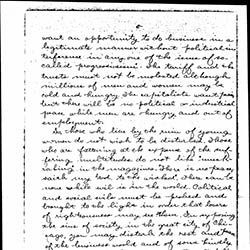 want an opportunity to do business in a
legitimate manner without political in
terference in any one of the issue of so
called progressivism. The tariff and the
trusts must not be molested although
millions of men and women may be
cold and hungry. The capitalists want peace
but there will be no political or industrial
peace while men are hungry and out of
employment.
So those who live by the ruin of young
women do not wish to be disturbed. Those
who are fattening at the expense of the suf
fering multitudes do not like "muck-
raking" in the magazines. There is no peace
which may be to the wicked. There can be
now while evil is in the world. Political
and social evils must be exposed and
brought to the light in order that hosts
of righteousness may see them. In exposing
the sins of society, in the great city of Chi
cago, you may disturb the rest and
of the business world and of some kindly